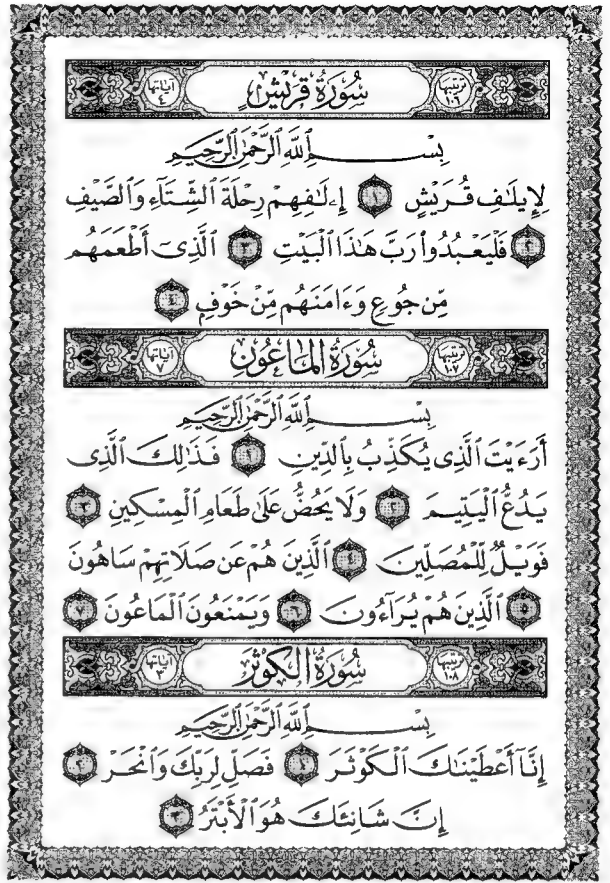 ترتيبها ١٠٦ سُورَةُ قُرَيْشٍ آياتها ٤
بِسْمِ ٱللَّهِ ٱلرَّحْمَٰنِ ٱلرَّحِيمِ
لِإِيلَٰفِ قُرَيْشٍ ١ إِۦلَٰفِهِمْ رِحْلَةَ ٱلشِّتَآءِ وَٱلصَّيْفِ
٢ فَلْيَعْبُدُوا۟ رَبَّ هَٰذَا ٱلْبَيْتِ ٣ ٱلَّذِىٓ أَطْعَمَهُم
مِّن جُوعٍ وَءَامَنَهُم مِّنْ خَوْفٍۭ ٤
ترتيبها ١٠٧ سُورَةُ ٱلْمَاعُونِ آياتها ٧
بِسْمِ ٱللَّهِ ٱلرَّحْمَٰنِ ٱلرَّحِيمِ
أَرَءَيْتَ ٱلَّذِى يُكَذِّبُ بِٱلدِّينِ ١ فَذَٰلِكَ ٱلَّذِى
يَدُعُّ ٱلْيَتِيمَ ٢ وَلَا يَحُضُّ عَلَىٰ طَعَامِ ٱلْمِسْكِينِ ٣
فَوَيْلٌ لِّلْمُصَلِّينَ ٤ ٱلَّذِينَ هُمْ عَن صَلَاتِهِمْ سَاهُونَ
٥ ٱلَّذِينَ هُمْ يُرَآءُونَ ٦ وَيَمْنَعُونَ ٱلْمَاعُونَ ٧
ترتيبها ١٠٨ سُورَةُ ٱلْكَوْثَرِ آياتها ٣
بِسْمِ ٱللَّهِ ٱلرَّحْمَٰنِ ٱلرَّحِيمِ
إِنَّآ أَعْطَيْنَٰكَ ٱلْكَوْثَرَ ١ فَصَلِّ لِرَبِّكَ وَٱنْحَرْ ٢
إِنَّ شَانِئَكَ هُوَ ٱلْأَبْتَرُ ٣